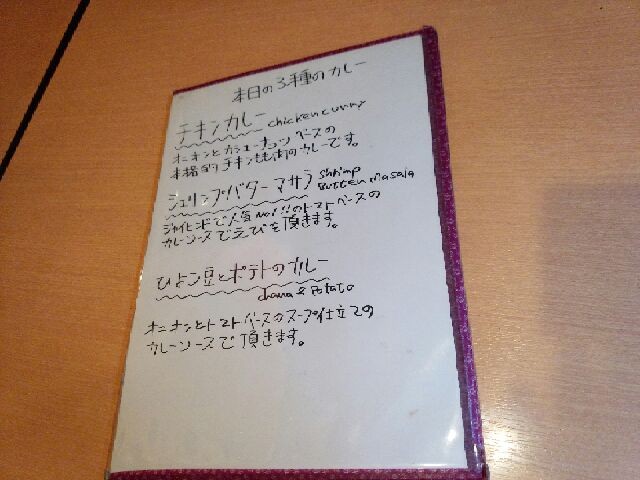 本日の3種のカレー
チキンカレー chickencurry
オニオンとカシューナッツベースの
本格的チキン the カレーです。
シュリンプバターマサラ shrimp
Butter masala
ジャイヒンドで人気No1!!のトマトベースの
カレーソースでえびを頂きます。
ひよこ豆とポテトのカレー
chana & Potato
オニオンとトマトベースのスープ仕立ての
カレーソースで頂きます。